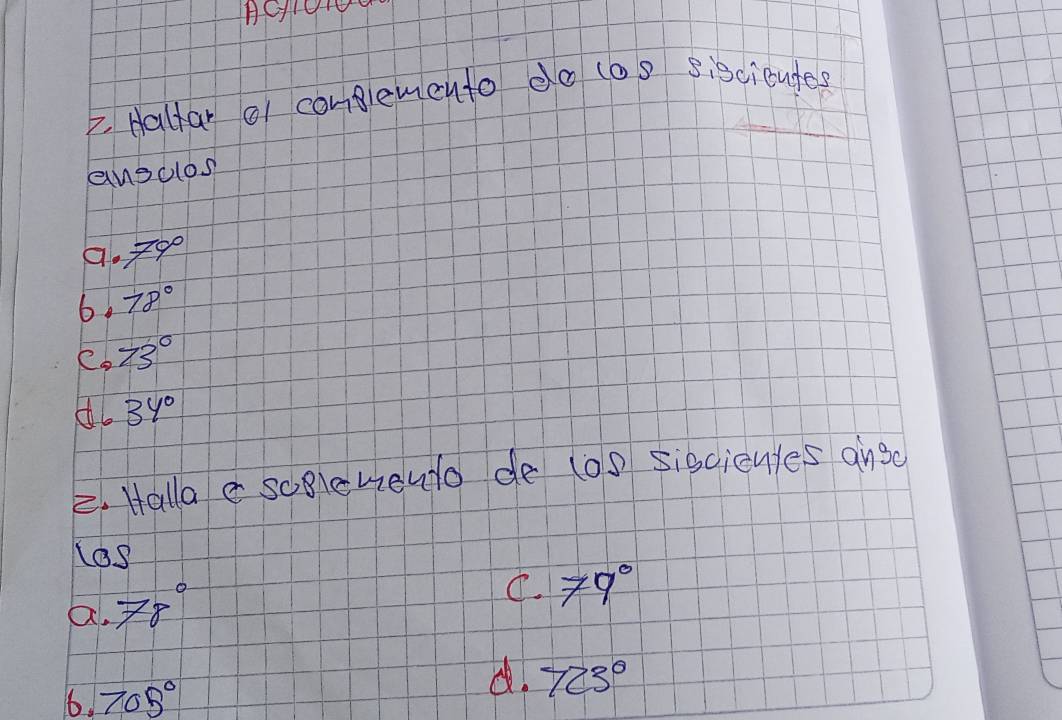 2. Haltar el complemento de los siguientes
angulos
a. 79°
b. 18°
c. 23°
d. 34°
2. Halla e suplemento de los siguientes angu
los
a. 78°
c. 79°
b. 105°
d. 123°